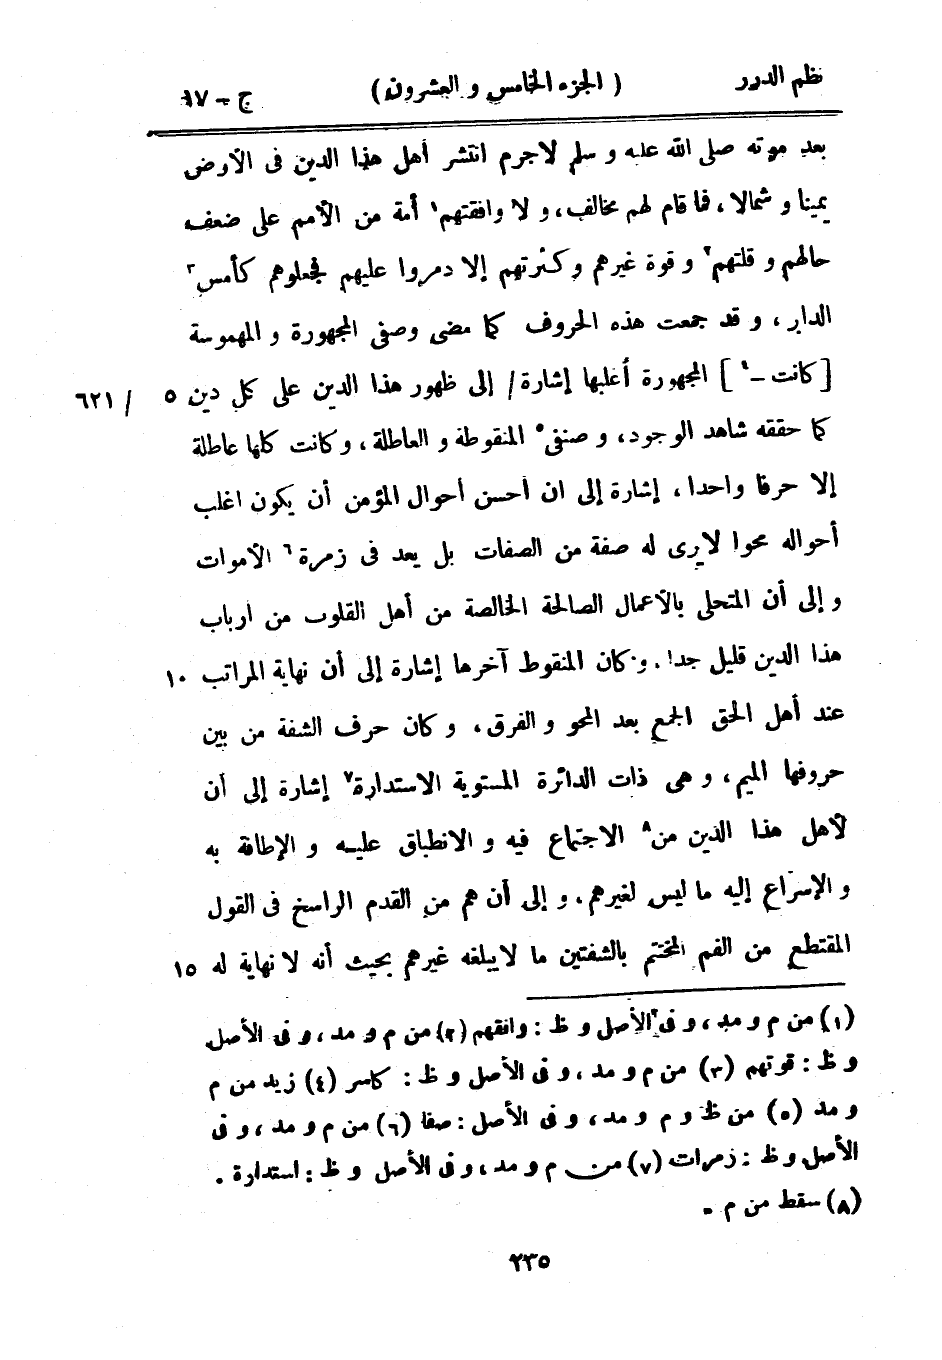 نظم الدرر ( الجزء الخامس و العشرون ) ج - ١٧
بعد موته صلى الله عليه و سلم لاجرم انتشر أهل هذا الدين فى الأرض
يمينا و شمالا ، فما قام لهم مخالف ، و لا وافقتهم١ أمة من الأمم على ضعف
حالهم و قلتهم٢ و قوة غيرهم و كثرتهم إلا دمروا عليهم فجعلوهم كأمس٣
الدابر ، و قد جمعت هذه الحروف كما مضى وصفى المجهورة و المهموسة
[ كانت -٤ ] المجهورة أغلبها إشارة / إلى ظهور هذا الدين على كل دين ٥ / ٦٢١
كما حققه شاهد الوجود ، و صنفى٥ المنقوطة و العاطلة ، و كانت كلها عاطلة
إلا حرفا واحدا ، إشارة إلى ان أحسن أحوال المؤمن أن يكون اغلب
أحواله محوا لايرى له صفة من الصفات بل يعد فى زمرة٦ الأموات
و إلى أن المتحلى بالأعمال الصالحة الخالصة من أهل القلوب من ارباب
هذا الدين قليل جدا . و كان المنقوط آخرها إشارة إلى أن نهاية المراتب ١٠
عند أهل الحق الجمع بعد المحو و الفرق ، و كان حرف الشفة من بين
حروفها الميم ، و هى ذات الدائرة المستوية الاستدارة٧ إشارة إلى أن
لأهل هذا الدين من٨ الاجتماع فيه و الانطباق عليه و الإطاقة به
و الإسراع إليه ما ليس لغيرهم ، و إلى أن هم من القدم الراسخ فى القول
المقتطع من الفم المختم بالشفتين ما لايبلغه غيرهم بحيث أنه لا نهاية له ١٥
(١) من م و مد ، و فى الأصل و ظ : وافقهم (٢) من م و مد ، و فى الأصل
و ظ : قوتهم (٣) من م و مد ، و فى الأصل و ظ : كاسر (٤) زيد من م
و مد (٥) من ظ و م و مد ، و فى الأصل : صفا (٦) من م و مد ، و فى
الأصل و ظ : زمرات (٧) من م و مد ، و فى الأصل و ظ : استدارة .
(٨) سقط من م .
٢٣٥